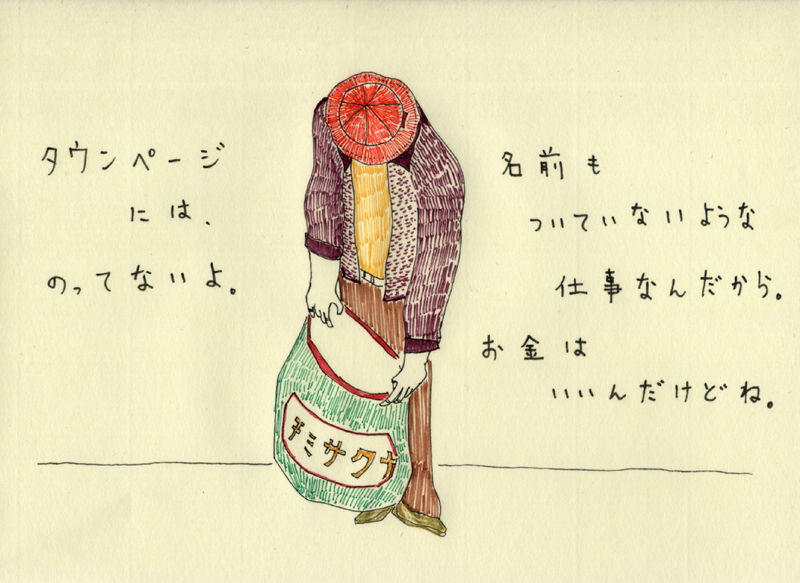 タウンページ
には、
のってないよ。
名前も
ついていないような
仕事なんだから。
お金は
いいんだけどね。
チミサクナ